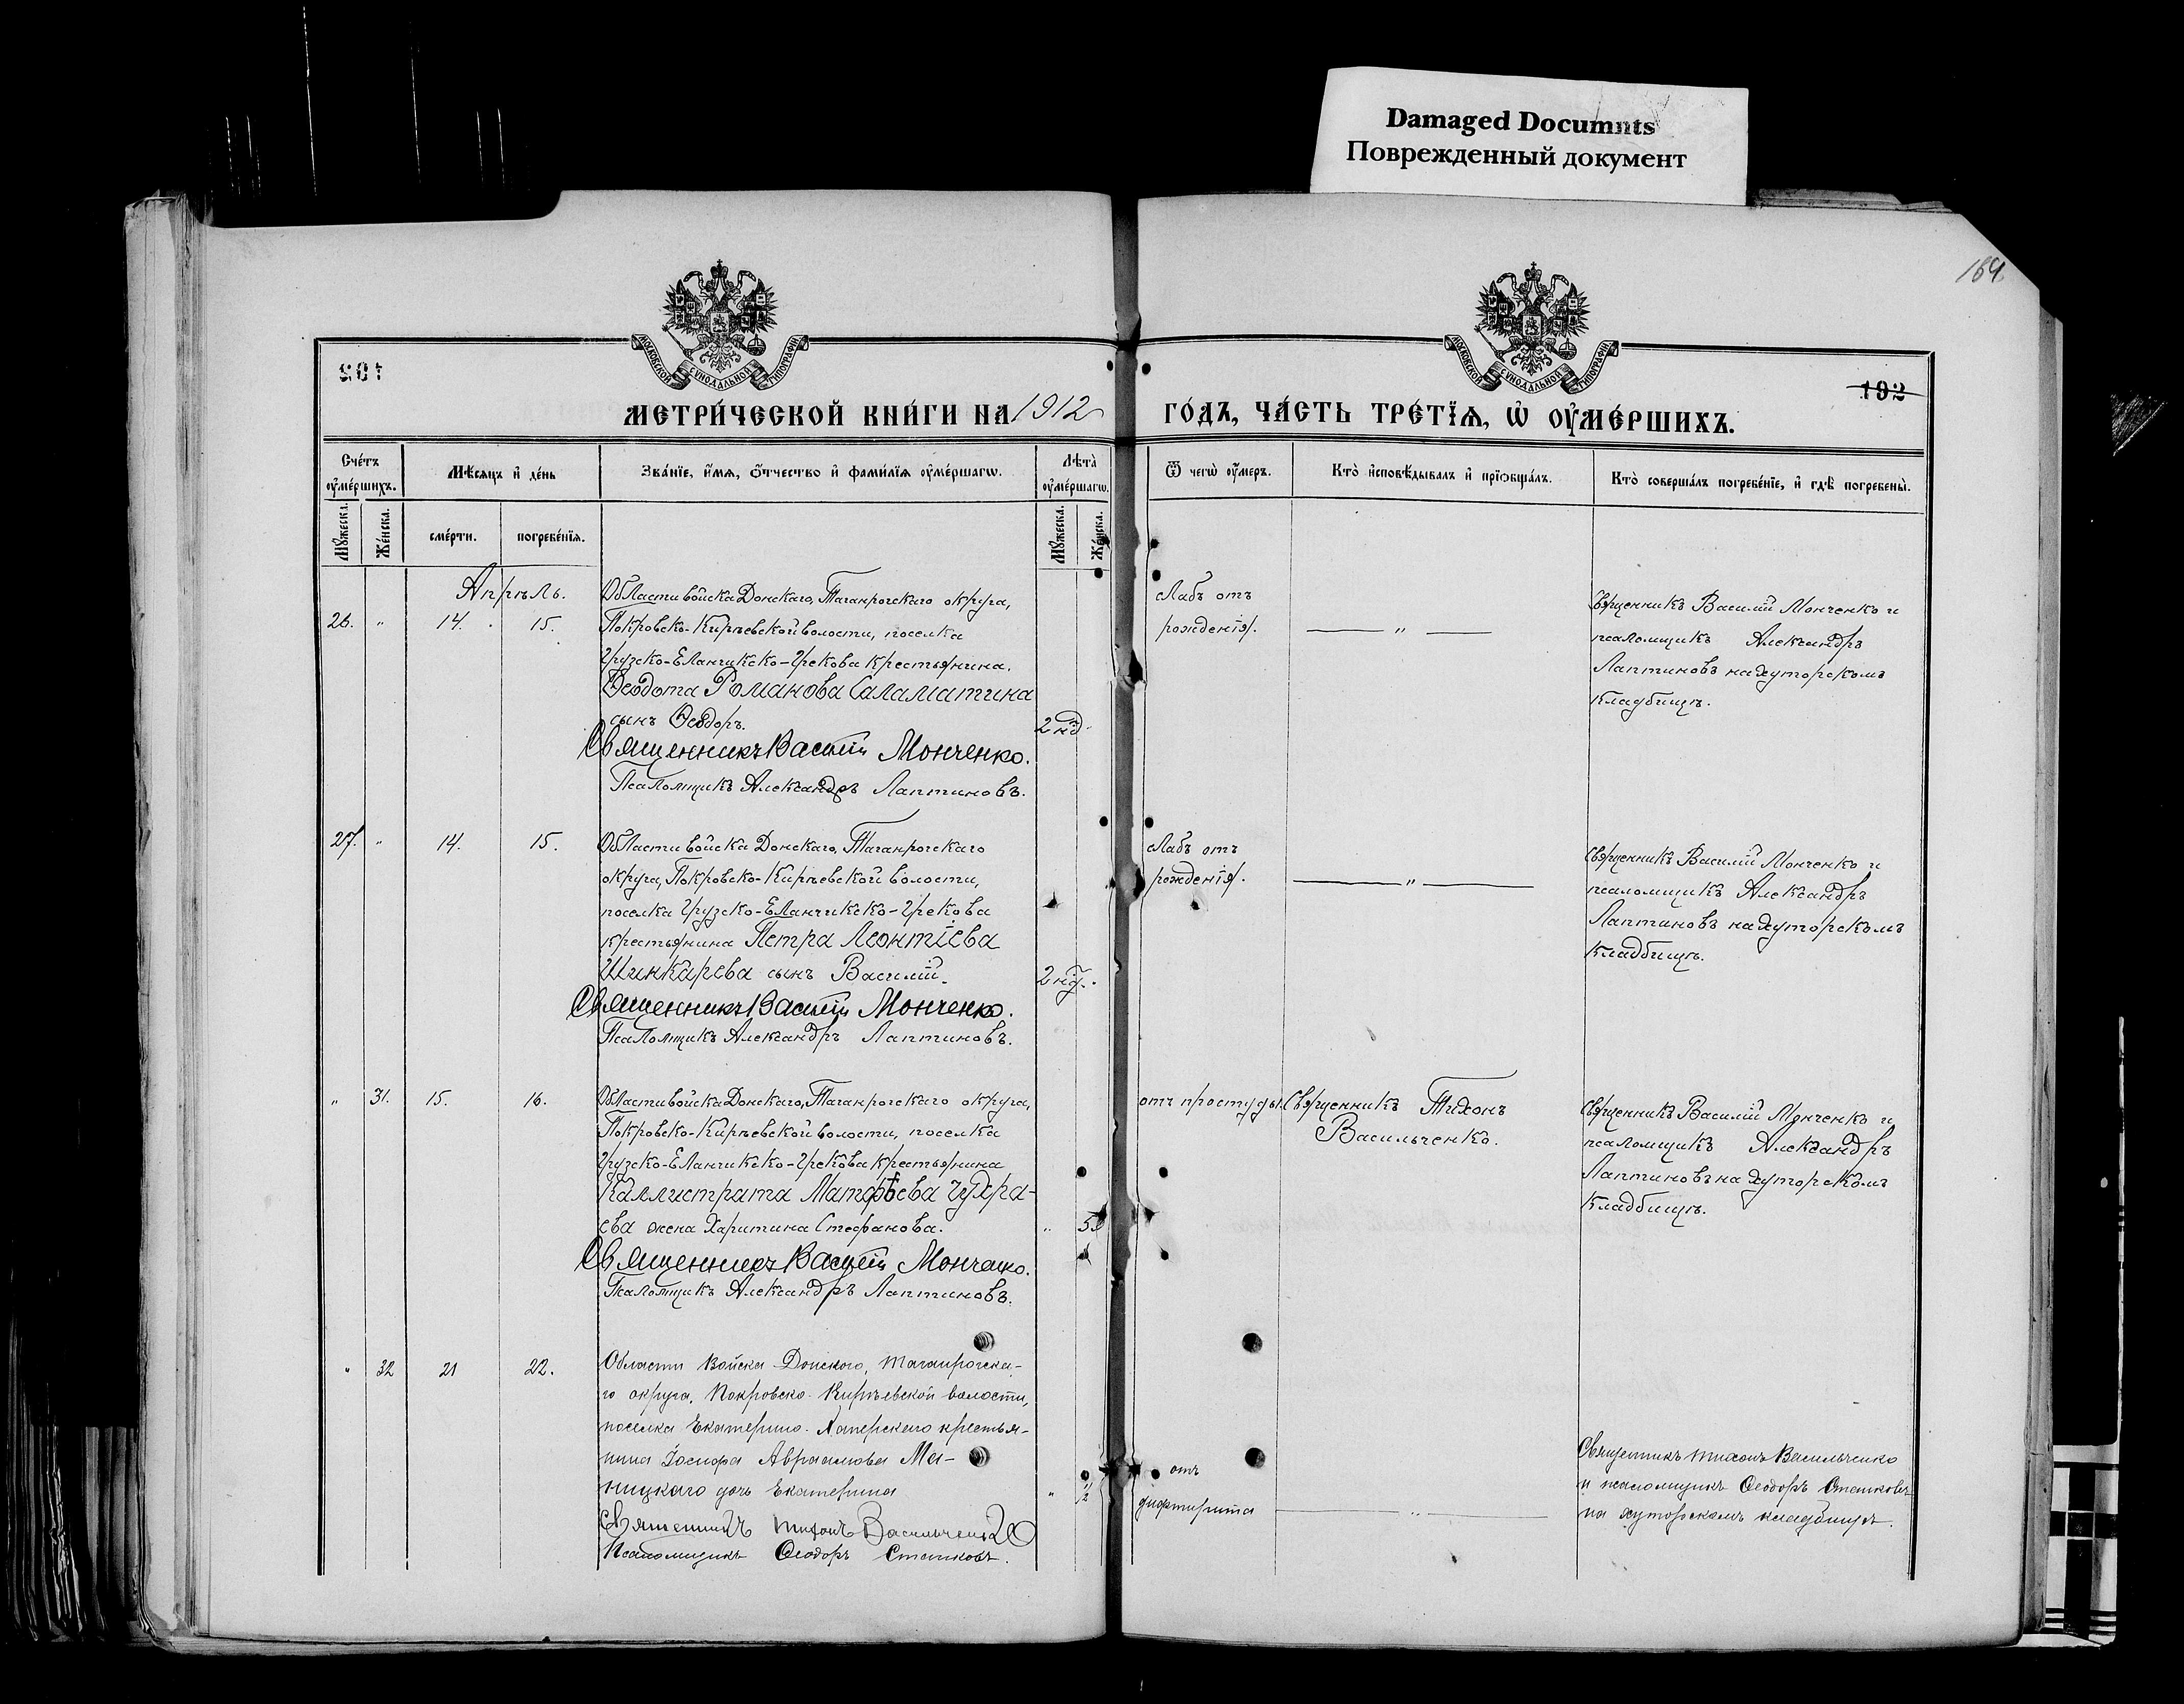 Damaged Documnts
Поврежденный документ
164
192
МОСКОВСКОЙ СѴНОДАЛЬНОЙ ТИПОГРАФІИ
МОСКОВСКОЙ СѴНОДАЛЬНОЙ ТИПОГРАФІИ
МЕТРИ́ЧЕСКОЙ КНИ́ГИ НА 1912 ГО́ДЪ, ЧА́СТЬ ТРЕ́ТЇѦ, Ѡ҆ ОУ҆МЕ́РШИХЪ.
Сче́тъ оу҆ме́ршихъ.
Мѣ́сяцъ и҆ де́нь
Зва́нїе, и҆́мя, ѻ҆́тчество и҆ фами́лїя оу҆ме́ршагѡ.
Лѣ́та оу҆ме́ршагѡ.
Ѿ чегѡ̀ оу҆́меръ.
Кто̀ и҆сповѣ́дывалъ и҆ прїѻбща́лъ.
Кто̀ соверша́лъ погребе́нїе, и҆ гдѣ̀ погребены̀.
Мꙋ́жеска.
Же́нска.
сме́рти.
погребе́нїя.
Мꙋ́жеска.
Же́нска.
Апрѣль.
26. " 14. 15.
Области войска Донскаго, Таганрогскаго округа,
Покровско-Кирѣевской волости, поселка
Грузско-Еланчикско-Грекова крестьянина
Ѳеодота Романова Саламатина
сынъ Ѳеодоръ.
2 нд.
Священникъ Василій Мончѣнко.
Псаломщикъ Александръ Лаптиновъ.
слабъ отъ
рожденія.
— " —
Священникъ Василій Монченко и
псаломщикъ Александръ
Лаптиновъ на хуторскомъ
кладбищѣ.
27. " 14. 15.
Области войска Донскаго, Таганрогскаго
округа, Покровско-Кирѣевской волости,
поселка Грузско-Еланчикско-Грекова
крестьянина Петра Леонтіева
Шинкарева сынъ Василій.
2 нд.
Священникъ Василій Монченко.
Псаломщикъ Александръ Лаптиновъ.
слабъ отъ
рожденія.
— " —
Священникъ Василій Монченко и
псаломщикъ Александръ
Лаптиновъ на хуторскомъ
кладбищѣ.
" 31. 15. 16.
Области войска Донскаго, Таганрогскаго округа,
Покровско-Кирѣевской волости, поселка
Грузско-Еланчикско-Грекова крестьянина
Каллистрата Матфѣева Чухра-
ева жена Харитина Стефанова.
"
Священникъ Василій Монченко.
Псаломщикъ Александръ Лаптиновъ.
отъ простуды.
Священникъ Тихонъ
Васильченко.
Священникъ Василій Монченко и
псаломщикъ Александръ
Лаптиновъ на хуторскомъ
кладбищѣ.
" 32 21 22.
Области Войска Донского, Таганрогска-
го округа, Покровско-Кирѣевской волости,
поселка Екатерино-Хаперскаго крестья-
нина Іосифа Авраамова Ма-
ницкаго дочь Екатерина
" ½
Священникъ Тихонъ Васильченко
Псаломщикъ Ѳеодоръ Сташковъ.
отъ
дифтерита
— " —
Священникъ Тихонъ Васильченко
и псаломщикъ Ѳеодоръ Сташковъ
на хуторскомъ кладбищѣ.